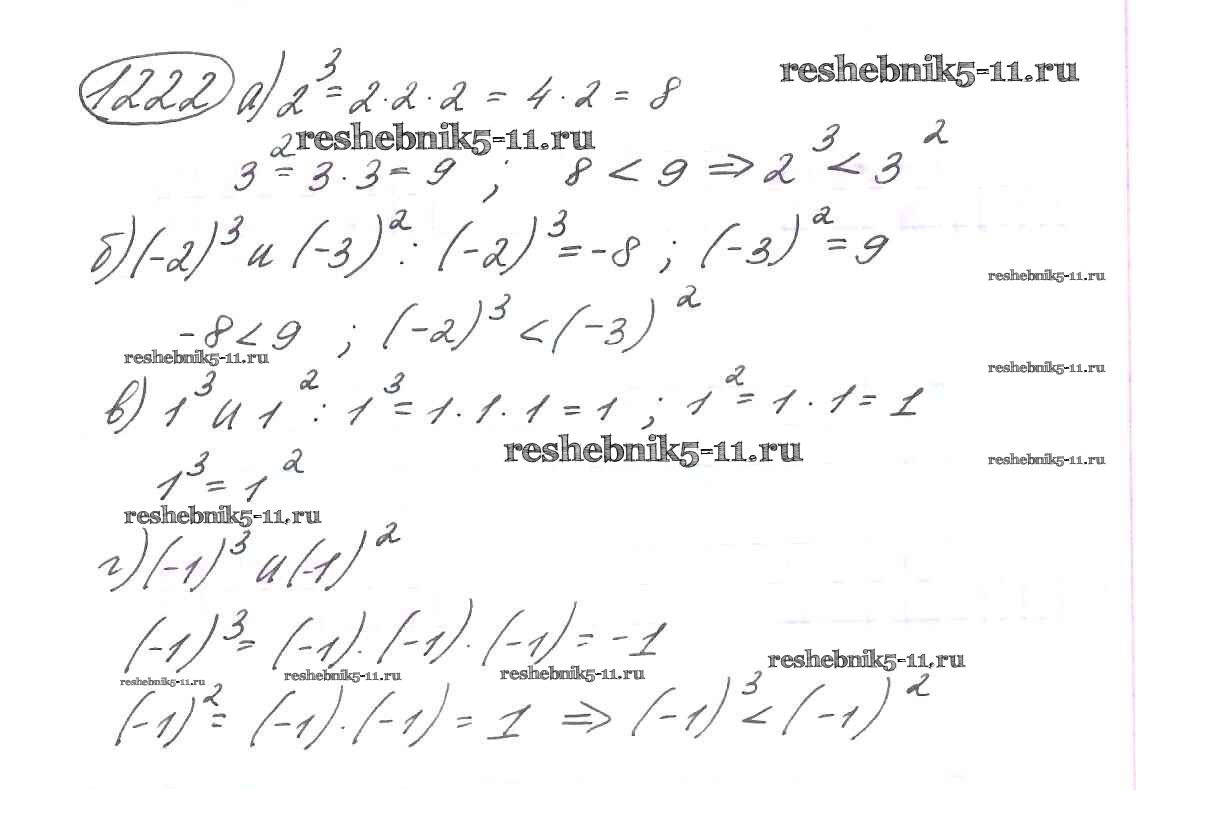 1222 а) 2³ = 2 · 2 · 2 = 4 · 2 = 8 reshebnik5-11.ru
reshebnik5-11.ru
3² = 3 · 3 = 9 ; 8 < 9 ⇒ 2³ < 3²
б) (-2)³ и (-3)² : (-2)³ = -8 ; (-3)² = 9
reshebnik5-11.ru
-8 < 9 ; (-2)³ < (-3)²
reshebnik5-11.ru
reshebnik5-11.ru
в) 1³ и 1² : 1³ = 1 · 1 · 1 = 1 ; 1² = 1 · 1 = 1
reshebnik5-11.ru
reshebnik5-11.ru
1³ = 1²
reshebnik5-11.ru
г) (-1)³ и (-1)²
(-1)³ = (-1) · (-1) · (-1) = -1
reshebnik5-11.ru
reshebnik5-11.ru reshebnik5-11.ru reshebnik5-11.ru
(-1)² = (-1) · (-1) = 1 ⇒ (-1)³ < (-1)²